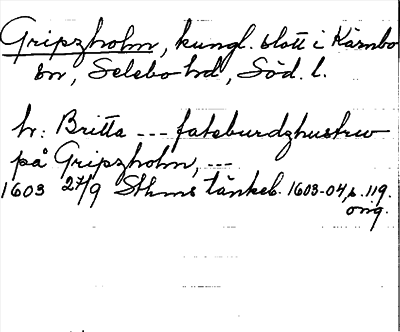 Gripzholm, kungl. slott i Kärnbo
sn, Selebo hd, Söd. l.
hr: Britta --- fateburdzhustrw
på Gripzholm, ---
1603 27/9 Sthms tänkeb. 1603-04, s. 119.
orig.